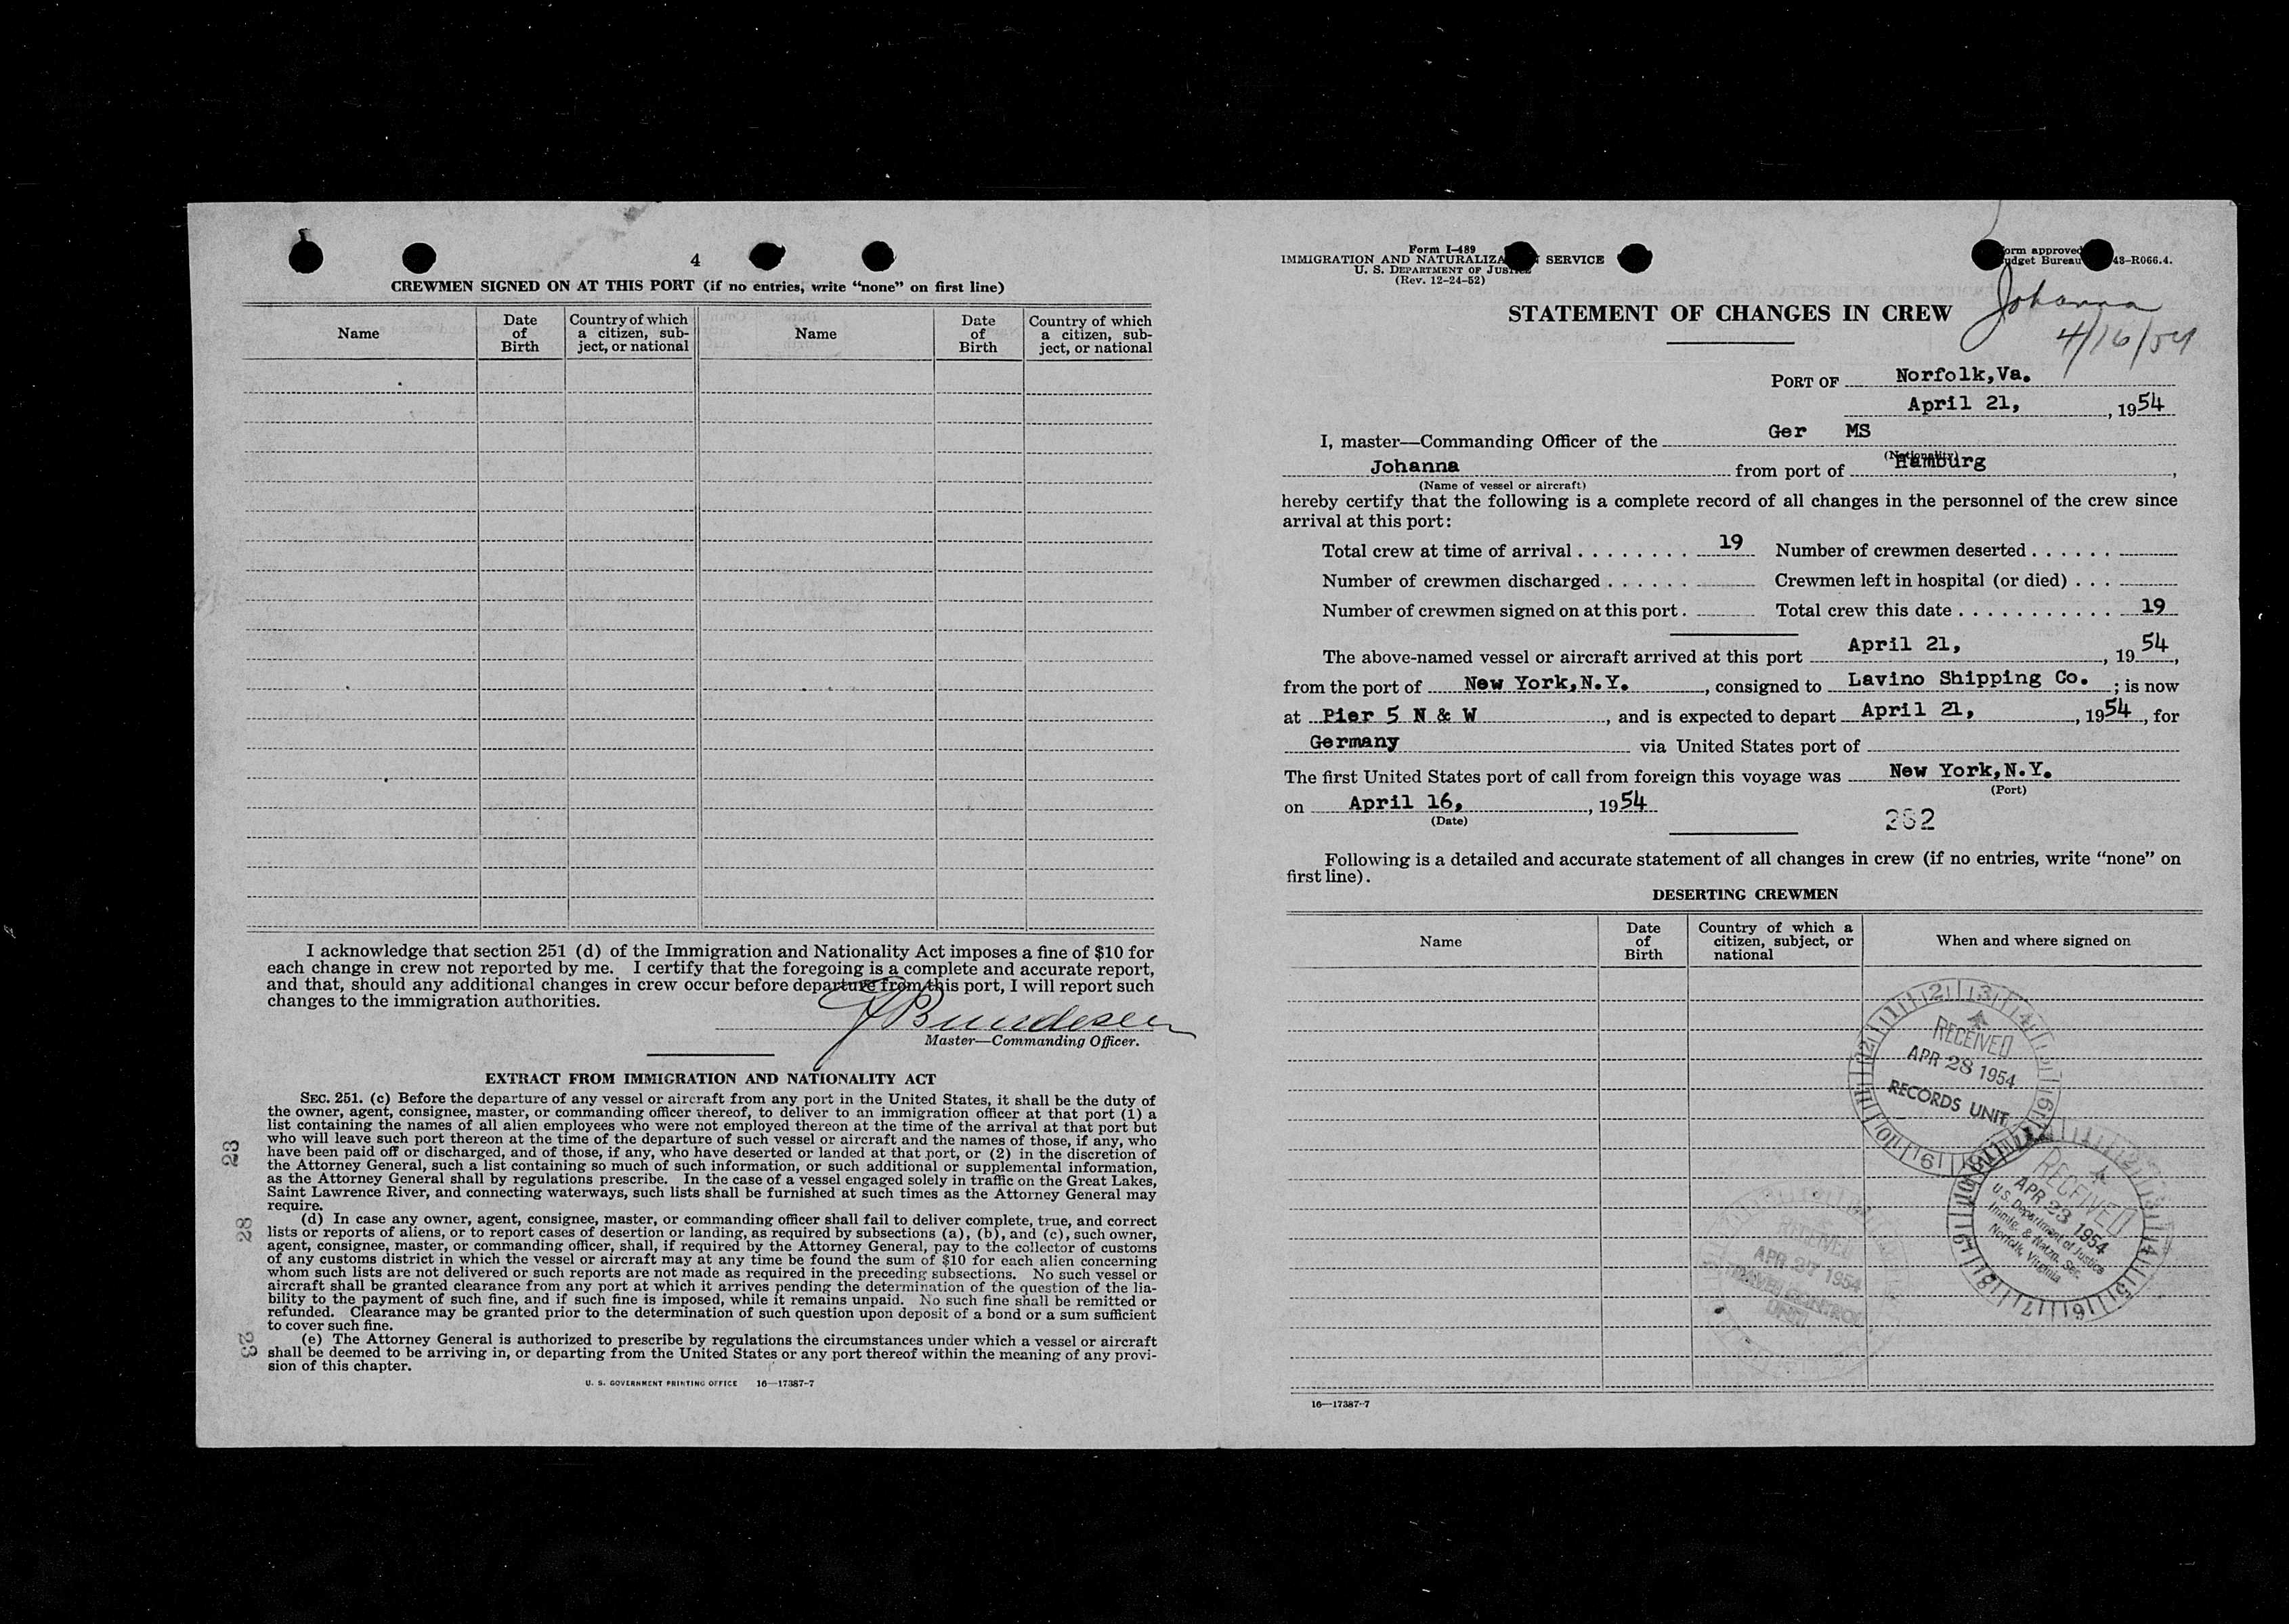 4
CREWMEN SIGNED ON AT THIS PORT (if no entries, write “none” on first line)
Name
Date of Birth
Country of which a citizen, subject, or national
Name
Date of Birth
Country of which a citizen, subject, or national
I acknowledge that section 251 (d) of the Immigration and Nationality Act imposes a fine of $10 for
each change in crew not reported by me. I certify that the foregoing is a complete and accurate report,
and that, should any additional changes in crew occur before departure from this port, I will report such
changes to the immigration authorities.
Bundesen
Master—Commanding Officer.
EXTRACT FROM IMMIGRATION AND NATIONALITY ACT
SEC. 251. (c) Before the departure of any vessel or aircraft from any port in the United States, it shall be the duty of
the owner, agent, consignee, master, or commanding officer thereof, to deliver to an immigration officer at that port (1) a
list containing the names of all alien employees who were not employed thereon at the time of the arrival at that port but
who will leave such port thereon at the time of the departure of such vessel or aircraft and the names of those, if any, who
have been paid off or discharged, and of those, if any, who have deserted or landed at that port, or (2) in the discretion of
the Attorney General, such a list containing so much of such information, or such additional or supplemental information,
as the Attorney General shall by regulations prescribe. In the case of a vessel engaged solely in traffic on the Great Lakes,
Saint Lawrence River, and connecting waterways, such lists shall be furnished at such times as the Attorney General may
require.
(d) In case any owner, agent, consignee, master, or commanding officer shall fail to deliver complete, true, and correct
lists or reports of aliens, or to report cases of desertion or landing, as required by subsections (a), (b), and (c), such owner,
agent, consignee, master, or commanding officer, shall, if required by the Attorney General, pay to the collector of customs
of any customs district in which the vessel or aircraft may at any time be found the sum of $10 for each alien concerning
whom such lists are not delivered or such reports are not made as required in the preceding subsections. No such vessel or
aircraft shall be granted clearance from any port at which it arrives pending the determination of the question of the lia-
bility to the payment of such fine, and if such fine is imposed, while it remains unpaid. No such fine shall be remitted or
refunded. Clearance may be granted prior to the determination of such question upon deposit of a bond or a sum sufficient
to cover such fine.
(e) The Attorney General is authorized to prescribe by regulations the circumstances under which a vessel or aircraft
shall be deemed to be arriving in, or departing from the United States or any port thereof within the meaning of any provi-
sion of this chapter.
U. S. GOVERNMENT PRINTING OFFICE 16—17387-7
Form I-489
IMMIGRATION AND SERVICE
U. S. DEPARTMENT OF JUSTICE
(Rev. 12-24-52)
approved
Bureau 43-R066.4.
STATEMENT OF CHANGES IN CREW
Johanna
4/16/54
PORT OF Norfolk,Va.
April 21, , 1954
I, master—Commanding Officer of the Ger MS
(Nationality)
Johanna from port of Hamburg ,
(Name of vessel or aircraft)
hereby certify that the following is a complete record of all changes in the personnel of the crew since
arrival at this port:
Total crew at time of arrival . . . . . . . . 19 Number of crewmen deserted . . . . . .
Number of crewmen discharged . . . . . . Crewmen left in hospital (or died) . . .
Number of crewmen signed on at this port . Total crew this date . . . . . . . . . . . . 19
The above-named vessel or aircraft arrived at this port April 21, , 1954,
from the port of New York,N.Y. , consigned to Lavino Shipping Co. ; is now
at Pier 5 N & W , and is expected to depart April 21, , 1954 , for
Germany via United States port of
The first United States port of call from foreign this voyage was New York,N.Y.
(Port)
on April 16, , 1954
(Date)
Following is a detailed and accurate statement of all changes in crew (if no entries, write “none” on
first line).
DESERTING CREWMEN
Name
Date of Birth
Country of which a citizen, subject, or national
When and where signed on
RECEIVED
APR 28 1954
RECORDS UNIT
RECEIVED
APR 23 1954
U.S. Department of Justice
Immig. & Natzn. Ser.
Norfolk, Virginia
RECEIVED
APR 27 1954
TRAVEL CONTROL
UNIT
16—17387-7